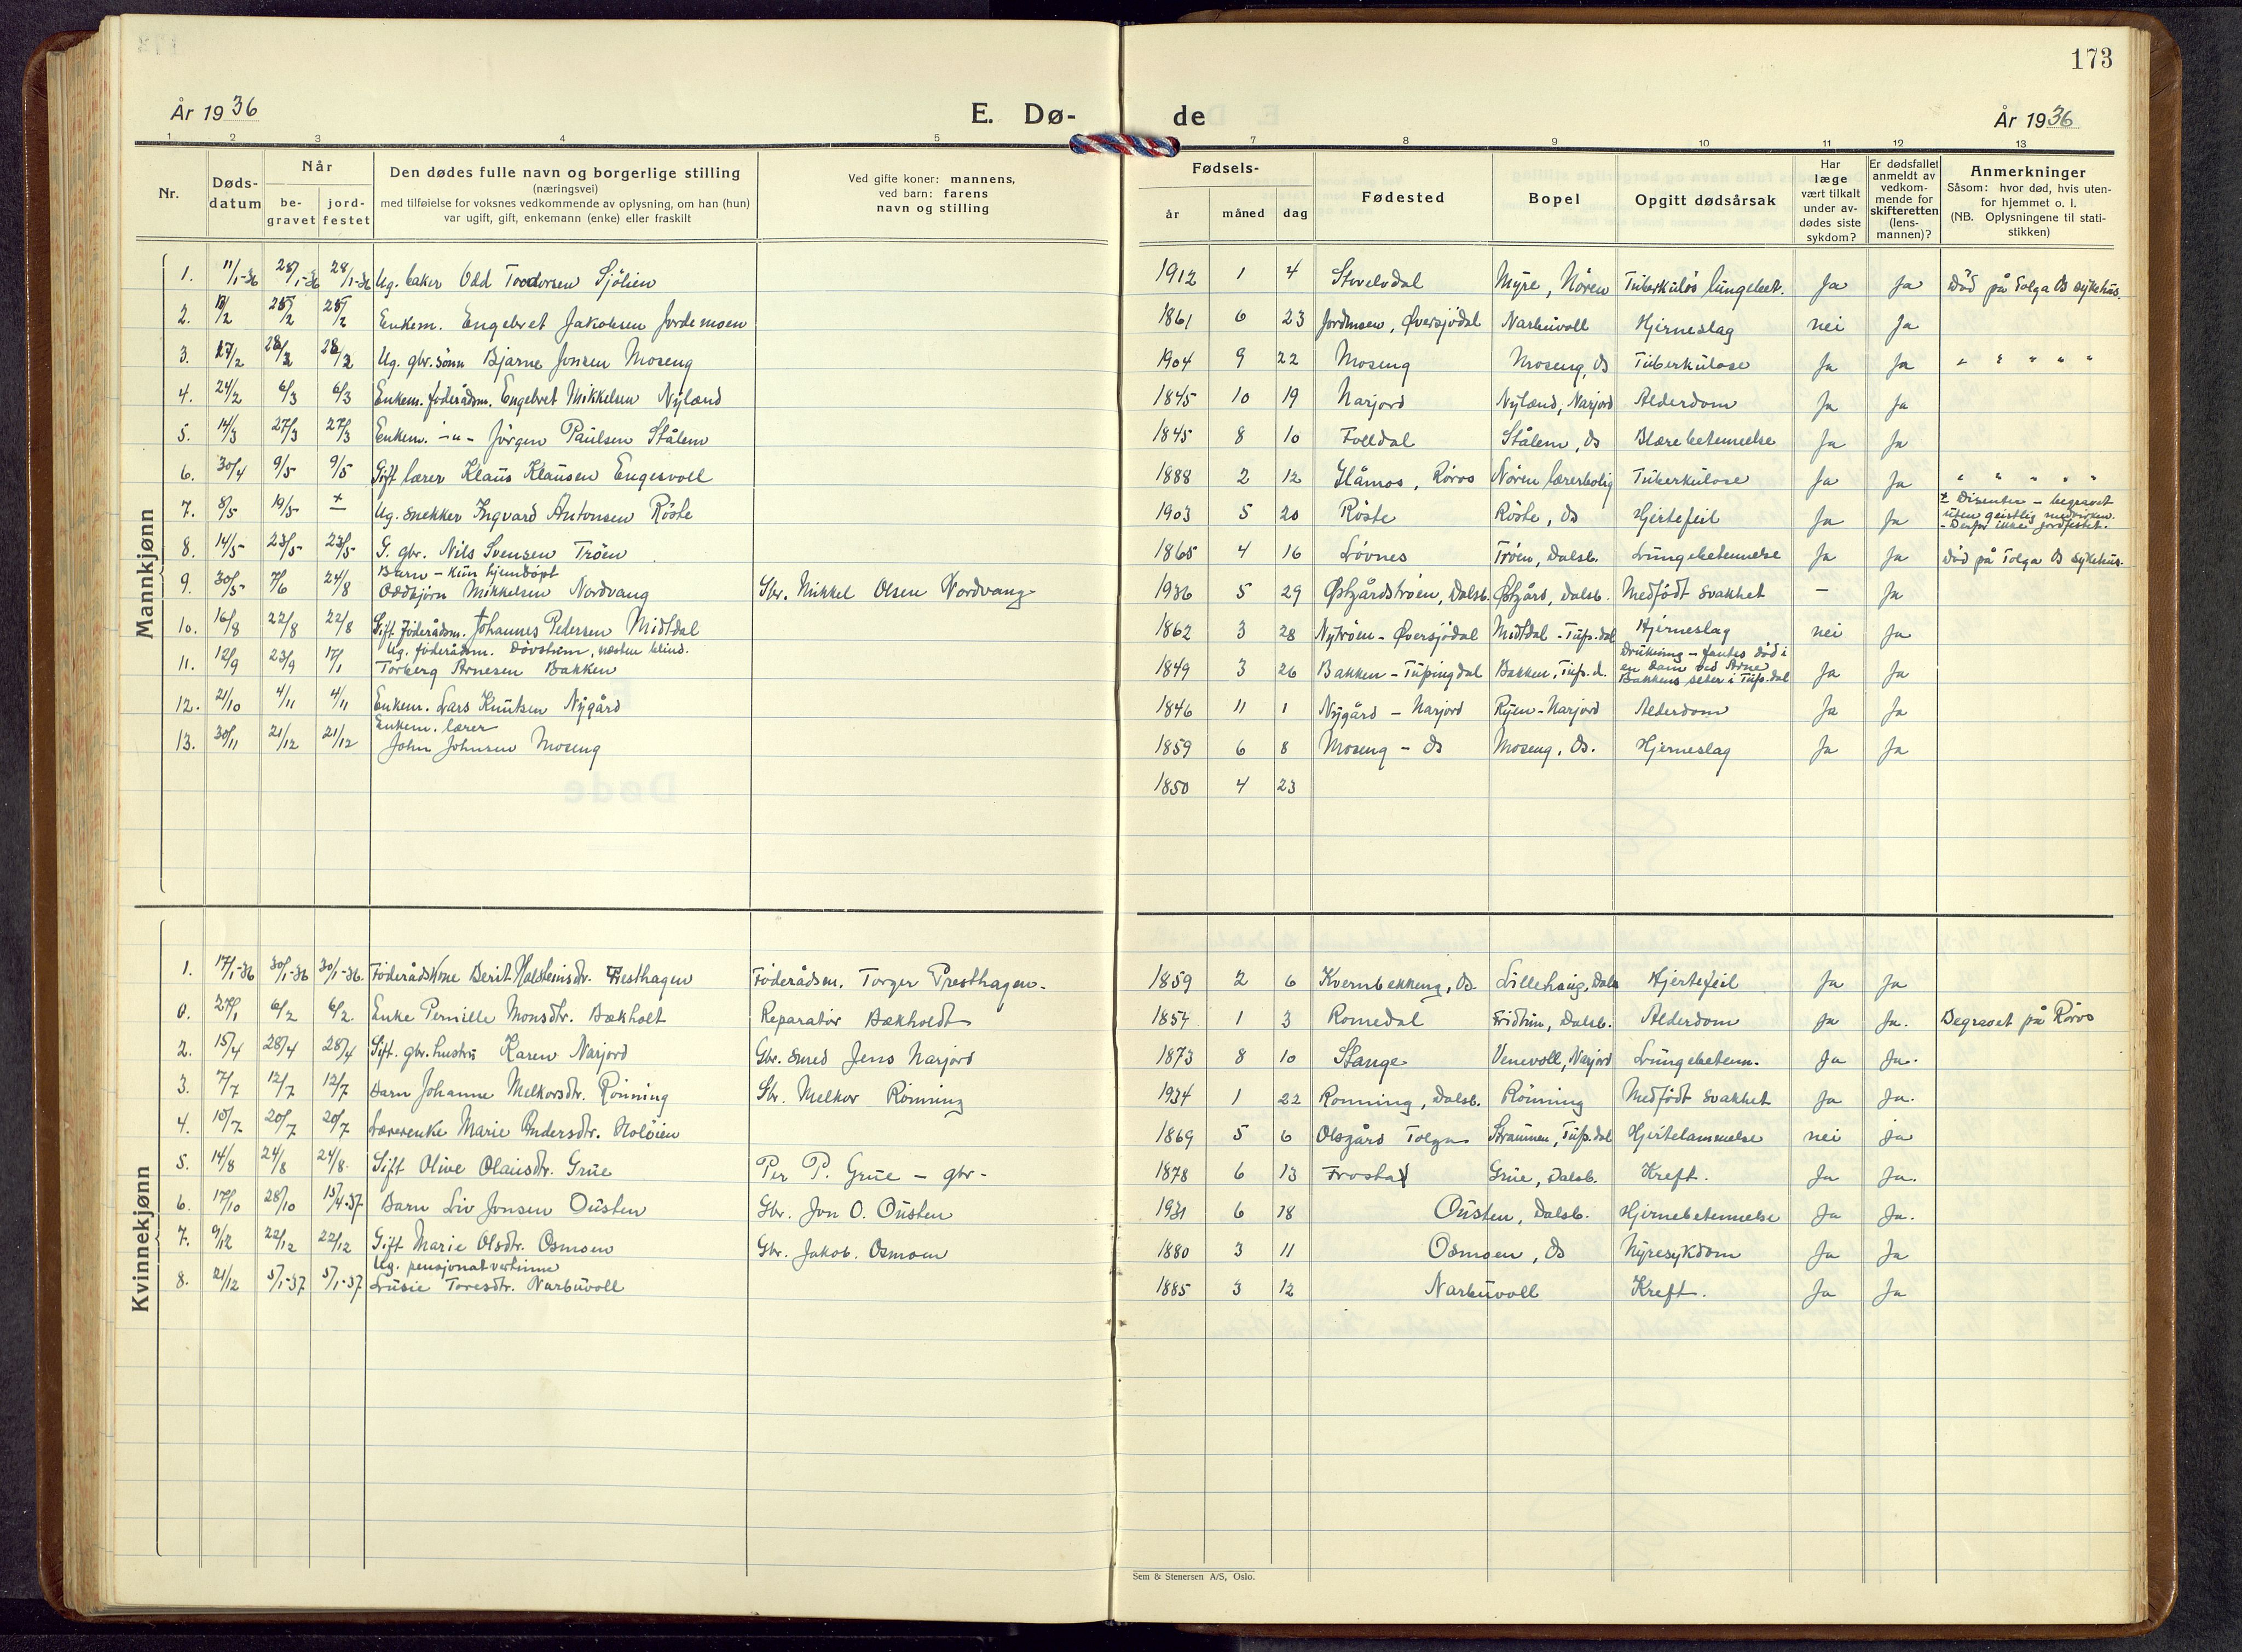 173
År 1936
E. Dø-
de
År 1936
1 2 3 4 5 7 8 9 10 11 12 13
Nr.
Døds-
datum
Når
be-
gravet
jord-
festet
Den dødes fulle navn og borgerlige stilling
(næringsvei)
med tilføielse for voksnes vedkommende av oplysning, om han (hun)
var ugift, gift, enkemann (enke) eller fraskilt
Ved gifte koner: mannens,
ved barn: farens
navn og stilling
Fødsels-
år måned dag
Fødested
Bopel
Opgitt dødsårsak
Har
læge
vært tilkalt
under av-
dødes siste
sykdom?
Er dødsfallet
anmeldt av
vedkom-
mende for
skifteretten
(lens-
mannen)?
Anmerkninger
Såsom: hvor død, hvis uten-
for hjemmet o. l.
(NB. Oplysningene til stati-
stikken)
Mannkjønn
1. 11/1-36 28/1-36 28/1-36 Ug. baker Odd Teodorsen Sjölien 1912 1 4 Storelvdal Myre, Nören Tuberkulös lungebet. Ja Ja Död på Tolga Os sykehus.
2. /2 25/2 25/2 Enkem. Engebret Jakobsen Jordemoen 1861 6 23 Jordmoen, Øversjödal Narbuvoll Hjerneslag nei Ja
3. 17/2 28/2 28/2 Ug. gbr. sönn Bjarne Jonsen Moseng 1904 9 22 Moseng Moseng, Os Tuberkulose Ja Ja " " " " "
4. 24/2 6/3 6/3 Enkem. föderådsm. Engebret Mikkelsen Nyland 1845 10 19 Narjord Nyland, Narjord Alderdom Ja Ja
5. 14/3 27/3 27/3 Enkem. -"- Jörgen Paulsen Stålem 1845 8 10 Folldal Stålem, Os Blærebetennelse Ja Ja
6. 30/4 9/5 9/5 Gift lærer Klaus Klausen Engesvoll 1888 2 12 Glåmos, Röros Nören lærerbolig Tuberkulose Ja Ja " " " " "
7. 8/5 19/5 ± Ug. snekker Ingvard Antonsen Röste 1903 5 20 Röste Röste, Os Hjertefeil Ja Ja ± Disenter - begravet
uten geistlig medvirken.
- Derfor ikke jordfestet.
8. 14/5 23/5 23/5 G. gbr. Nils Svensen Tröen 1865 4 16 Lövnes Tröen, Dalsb. Lungebetennelse Ja Ja Död på Tolga Os sykehus.
Barn - kun hjemdöpt
9. 30/5 7/6 24/8 Oddbjörn Mikkelsen Nordvang Gbr. Mikkel Olsen Nordvang 1936 5 29 Østgårdströen, Dalsb. Østgård, Dalsb. Medfödt svakhet - Ja
10. 16/8 22/8 22/8 Gift föderådsm. Johannes Pedersen Midtdal 1862 3 28 Nytröen - Øversjödal Midtdal - Tufs.dal Hjerneslag nei Ja
Ug. föderådsm. Dövstum, næsten blind.
11. 12/9 23/9 17/1 Torberg Arnesen Bakken 1849 3 26 Bakken - Tufsingdal Bakken, Tufs.d. Drukning - fantes död i
en dam ved Arne
Bakkens seter i Tufs.dal Ja Ja
12. 21/10 4/11 4/11 Enkem. Lars Knutsen Nygård 1846 11 1 Nygård - Narjord Ryen - Narjord Alderdom Ja Ja
Enkem. lærer
13. 30/11 21/12 21/12 John Johnsen Moseng 1859 6 8 Moseng - Os Moseng, Os. Hjerneslag Ja Ja
1850 4 23
Kvinnekjønn
1. 17/1-36 30/1-36 30/1-36. Föderådskone Berit Halsteinsdtr. Presthagen Föderådsm. Torger Presthagen. 1859 2 6 Kvernbekkeng, Os. Lillehaug, Dals Hjertefeil Ja Ja
0. 27/1 6/2 6/2. Enke Pernille Monsdtr. Bækholt Reparatör Bækholdt 1857 1 3 Romedal Fridtun, Dalsb. Alderdom Ja Ja. Begravet på Röros
2. 15/4 28/4 28/4 Gift. gbr. hustru Karen Narjord Gbr. smed Jens Narjord 1873 8 10 Stange Venevoll, Narjord Lungebetenn. Ja Ja.
3. 7/7 12/7 12/7 Barn Johanne Melkorsdtr. Rönning Gbr. Melkor Rönning 1934 1 22 Rönning, Dalsb. Rönning Medfödt svakhet Ja Ja.
4. 10/7 20/7 20/7 Lærerenke Marie Andersdtr. Holöien 1869 5 6 Olsgård Tolga Straumen, Tufs.dal Hjertelammelse nei ja
5. 14/8 24/8 24/8. Gift Olive Olausdtr. Grue Per P. Grue - gbr - 1878 6 13 Frosta Grue, Dalsb. Kreft. Ja Ja.
6. 17/10 28/10 15/4-37 Barn Liv Jonsen Ousten Gbr. Jon O. Ousten 1931 6 18 Ousten, Dalsb. Hjernebetennelse Ja Ja.
7. 9/12 22/12 22/12 Gift Marie Olsdtr. Osmoen Gbr. Jakob. Osmoen 1880 3 11 Osmoen, Os Nyresykdom Ja Ja
Ug. pensjonatvertinne
8. 21/12 5/1-37 5/1-37 Lusie Toresdtr. Narbuvoll 1885 3 12 Narbuvoll Kreft. Ja Ja
Sem & Stenersen A/S, Oslo.